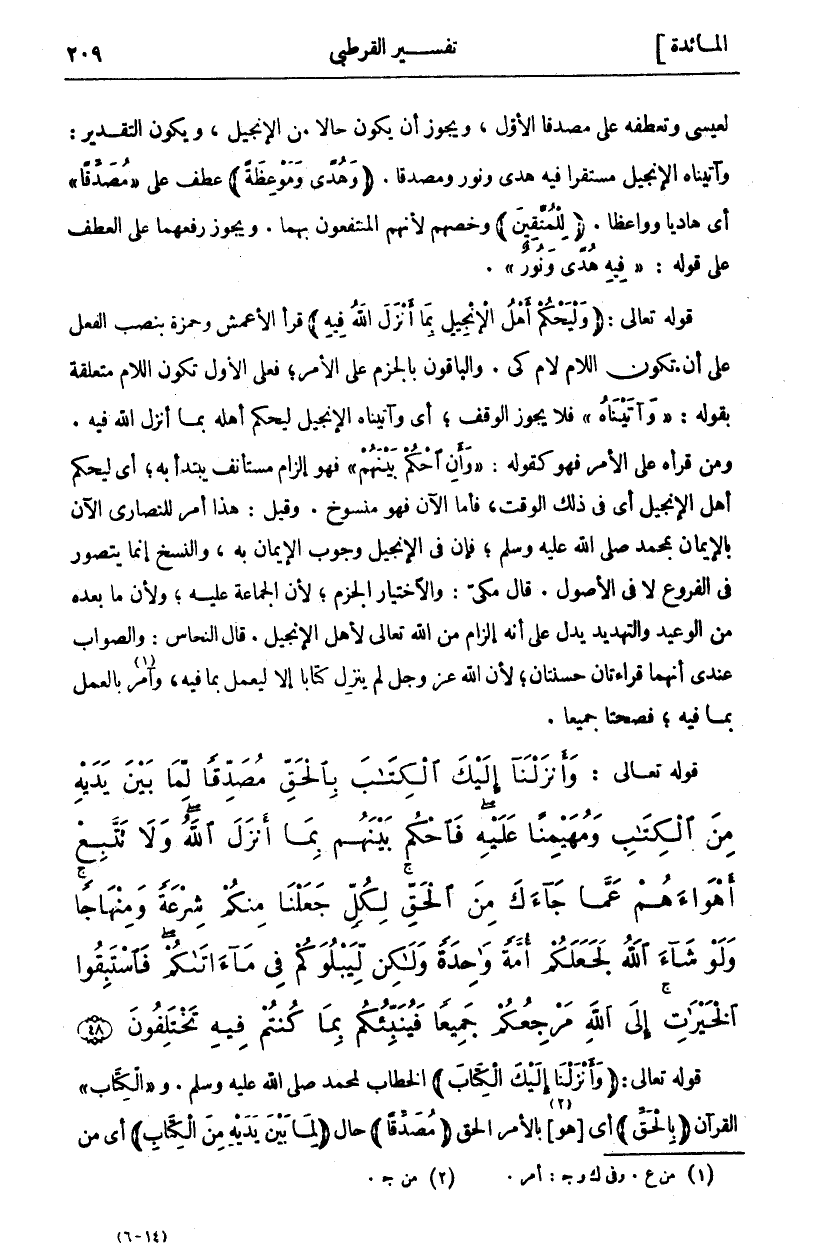 المائدة ]
تفسير القرطبى
٢٠٩
لعيسى وتعطفه على مصدقا الأوّل ، ويجوز أن يكون حالا من الإنجيل ، ويكون التقدير :
وآتيناه الإنجيل مستقرا فيه هدى ونور ومصدقا . ﴿ وَهُدًى وَمَوْعِظَةً ﴾ عطف على «مُصَدِّقًا»
أى هاديا وواعظا . ﴿ لِلْمُتَّقِينَ ﴾ وخصهم لأنهم المنتفعون بهما . ويجوز رفعهما على العطف
على قوله : « فِيهِ هُدًى وَنُورٌ » .
قوله تعالى : ﴿ وَلْيَحْكُمْ أَهْلُ الْإِنْجِيلِ بِمَا أَنْزَلَ اللهُ فِيهِ ﴾ قرأ الأعمش وحمزة بنصب الفعل
على أن تكون اللام لام كى . والباقون بالجزم على الأمر؛ فعلى الأول تكون اللام متعلقة
بقوله : « وَآتَيْنَاهُ » فلا يجوز الوقف ؛ أى وآتيناه الإنجيل ليحكم أهله بمـا أنزل الله فيه .
ومن قرأه على الأمر فهو كقوله : «وَأَنِ ٱحْكُمْ بَيْنَهُمْ» فهو إلزام مستأنف يبتدأ به؛ أى ليحكم
أهل الإنجيل أى فى ذلك الوقت، فأما الآن فهو منسوخ . وقيل : هذا أمر للنصارى الآن
بالإيمان بمحمد صلى الله عليه وسلم ؛ فإن فى الإنجيل وجوب الإيمان به ، والنسخ إنما يتصور
فى الفروع لا فى الأصول . قال مكىّ : والاختيار الجزم ؛ لأن الجماعة عليـه ؛ ولأن ما بعده
من الوعيد والتهديد يدل على أنه إلزام من الله تعالى لأهل الإنجيل . قال النحاس : والصواب
عندى أنهما قراءتان حسنتان؛ لأن الله عز وجل لم ينزل كتابا إلا ليعمل بما فيه، وآمر (١) بالعمل
بمـا فيه ؛ فصحتا جميعا .
قوله تعـالى : وَأَنزَلْنَآ إِلَيْكَ ٱلْكِتَٰبَ بِٱلْحَقِّ مُصَدِّقًا لِّمَا بَيْنَ يَدَيْهِ
مِنَ ٱلْكِتَٰبِ وَمُهَيْمِنًا عَلَيْهِ ۖ فَٱحْكُم بَيْنَهُم بِمَآ أَنزَلَ ٱللَّهُ ۖ وَلَا تَتَّبِعْ
أَهْوَآءَهُمْ عَمَّا جَآءَكَ مِنَ ٱلْحَقِّ ۚ لِكُلٍّ جَعَلْنَا مِنكُمْ شِرْعَةً وَمِنْهَاجًا ۚ
وَلَوْ شَآءَ ٱللَّهُ لَجَعَلَكُمْ أُمَّةً وَٰحِدَةً وَلَٰكِن لِّيَبْلُوَكُمْ فِى مَآ ءَاتَىٰكُمْ ۖ فَٱسْتَبِقُوا
ٱلْخَيْرَٰتِ ۚ إِلَى ٱللَّهِ مَرْجِعُكُمْ جَمِيعًا فَيُنَبِّئُكُم بِمَا كُنتُمْ فِيهِ تَخْتَلِفُونَ ٤٨
قوله تعالى : ﴿ وَأَنْزَلْنَا إِلَيْكَ الْكِتَابَ ﴾ الخطاب لمحمد صلى الله عليه وسلم . و «الْكِتَاب»
القرآن ﴿ بِالْحَقِّ ﴾ أى [هو] (٢) بالأمر الحق ﴿ مُصَدِّقًا ﴾ حال ﴿ لِمَا بَيْنَ يَدَيْهِ مِنَ الْكِتَابِ ﴾ أى من
(١) من ع . وفى ك و جـ : أمر . (٢) من جـ .
(٦-١٤)